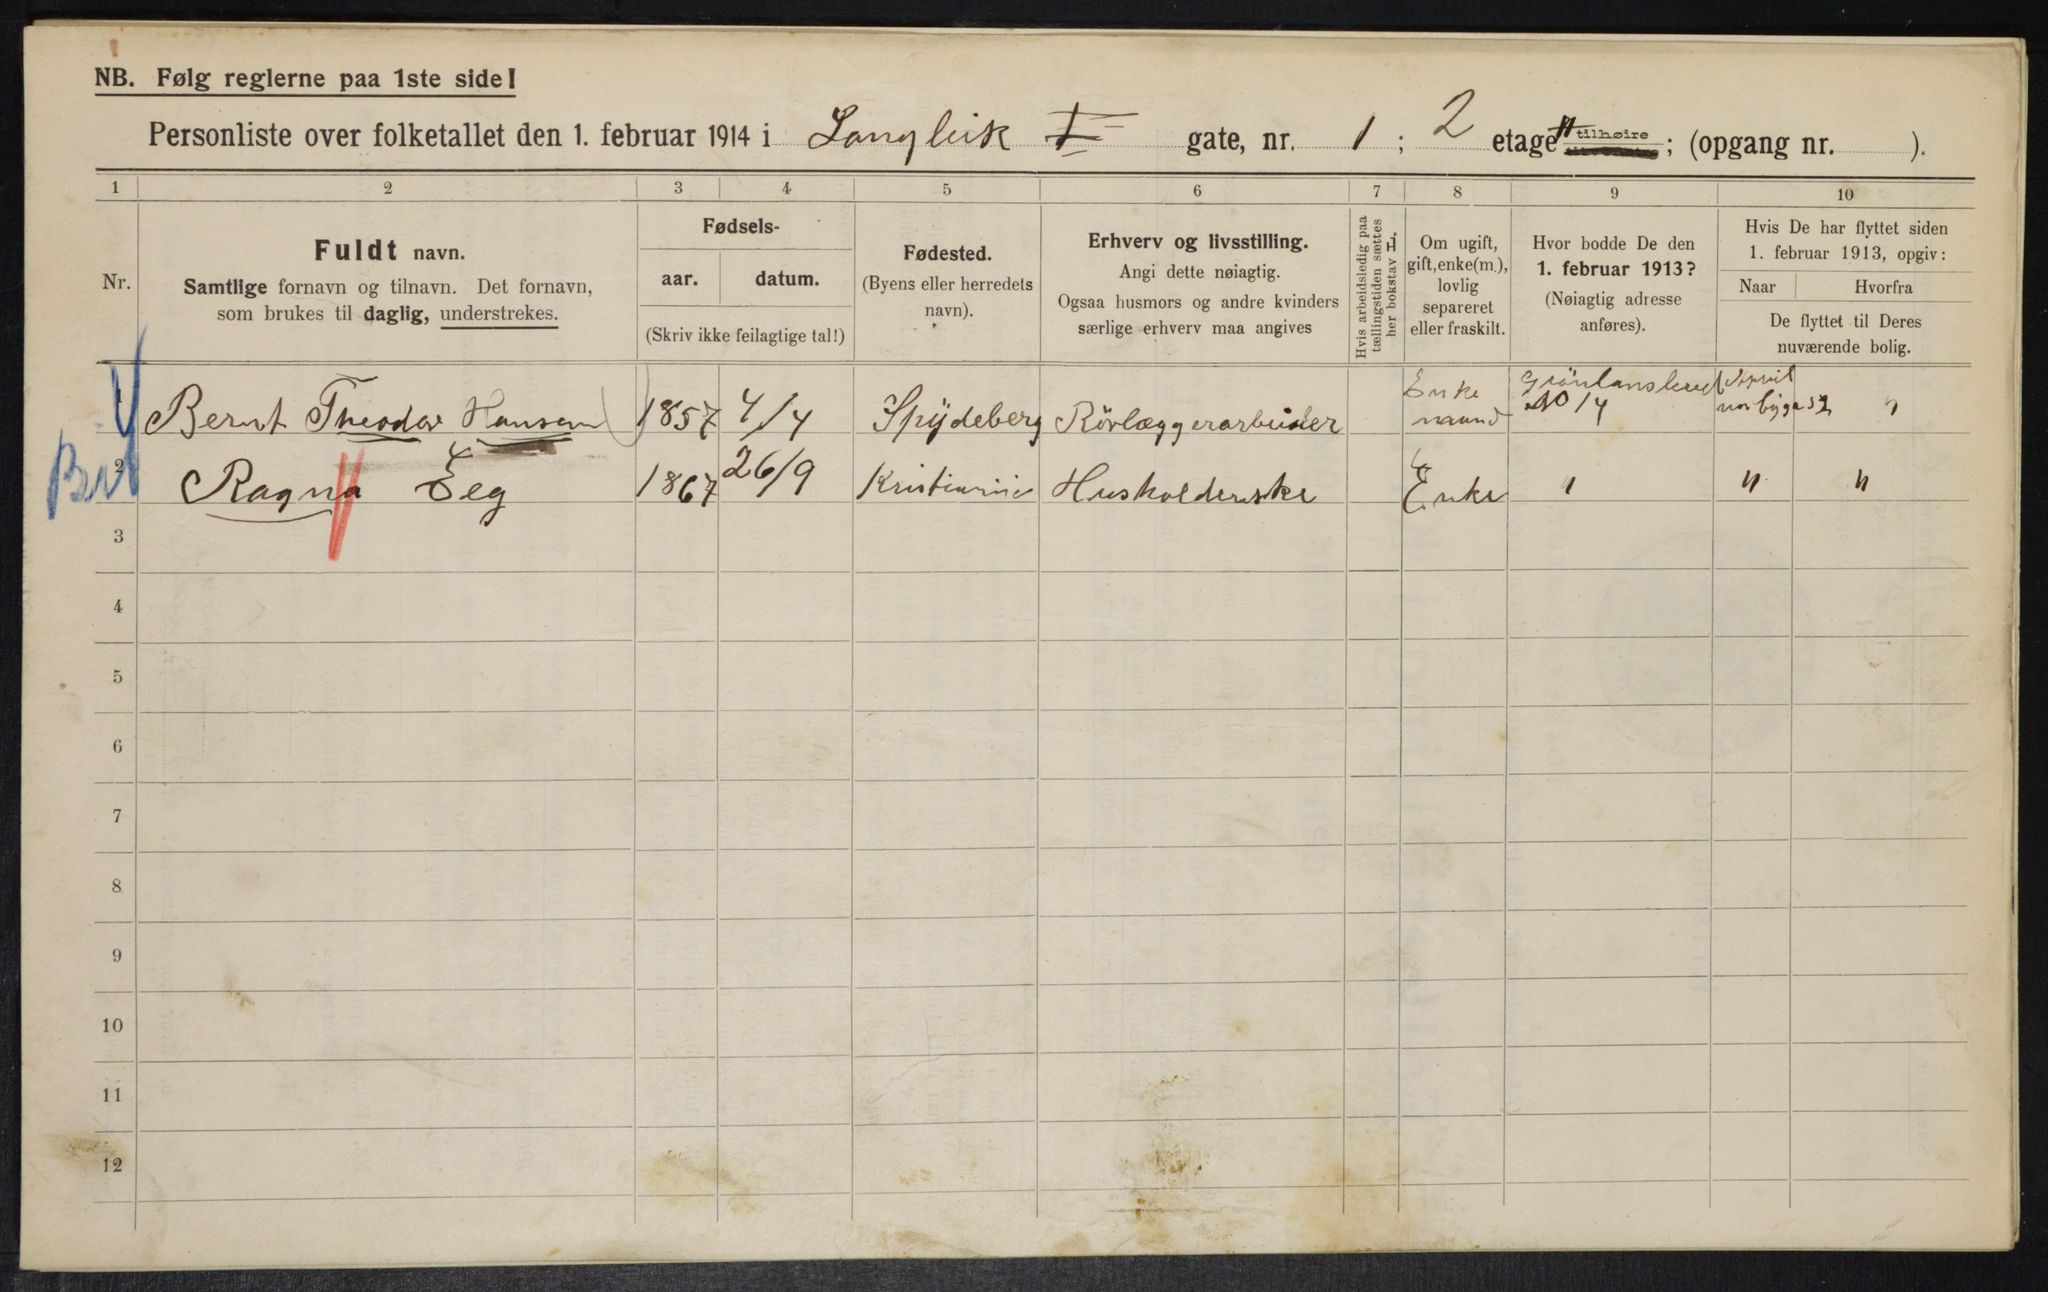 NB. Følg reglerne paa 1ste side!
Personliste over folketallet den 1. februar 1914 i Langleik I gate, nr. 1 ; 2 etage tilhøire ; (opgang nr. ).
1 2 3 4 5 6 7 8 9 10
Nr.
Fuldt navn.
Samtlige fornavn og tilnavn. Det fornavn,
som brukes til daglig, understrekes.
Fødsels-
aar. datum.
(Skriv ikke feilagtige tal!)
Fødested.
(Byens eller herredets
navn).
Erhverv og livsstilling.
Angi dette nøiagtig.
Ogsaa husmors og andre kvinders
særlige erhverv maa angives
Hvis arbeidsledig paa
tællingstiden sættes
her bokstav L.
Om ugift,
gift, enke(m.),
lovlig
separeret
eller fraskilt.
Hvor bodde De den
1. februar 1913?
(Nøiagtig adresse
anføres).
Hvis De har flyttet siden
1. februar 1913, opgiv:
Naar Hvorfra
De flyttet til Deres
nuværende bolig.
Bernt Theodor Hansen 1857 4/4 Spydeberg Rörlæggerarbeider Enke
mand
2 Ragna Eeg 1867 26/9 Kristiania Husholderske Enke " " "
3
4
5
6
7
8
9
10
11
12